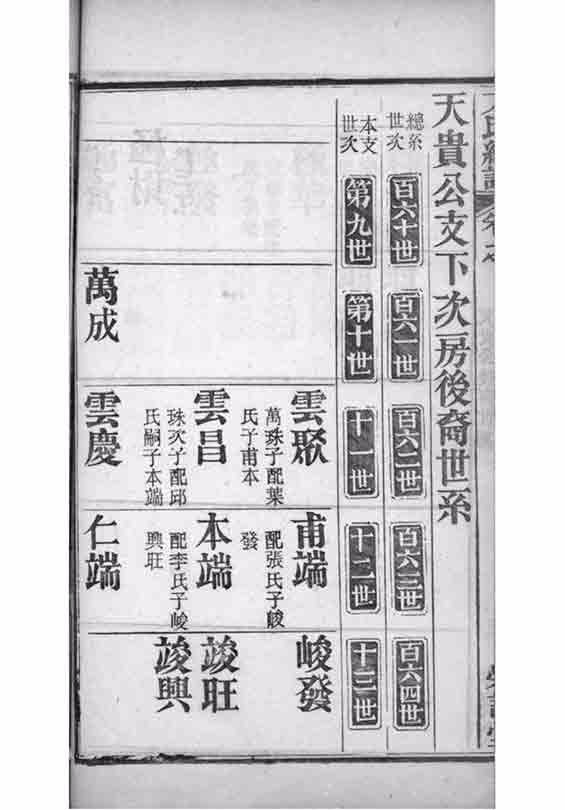 天貴公支下次房後裔世系
總系世次
百六十世
百六一世
百六二世
百六三世
百六四世
本支世次
第九世
第十世
十一世
十二世
十三世
雲聚
萬珠子配葉
氏子甫本
甫端
配張氏子峻
發
峻發
雲昌
珠次子配邱
氏嗣子本端
本端
配李氏子峻
興旺
竣旺
竣興
萬成
雲慶
仁端